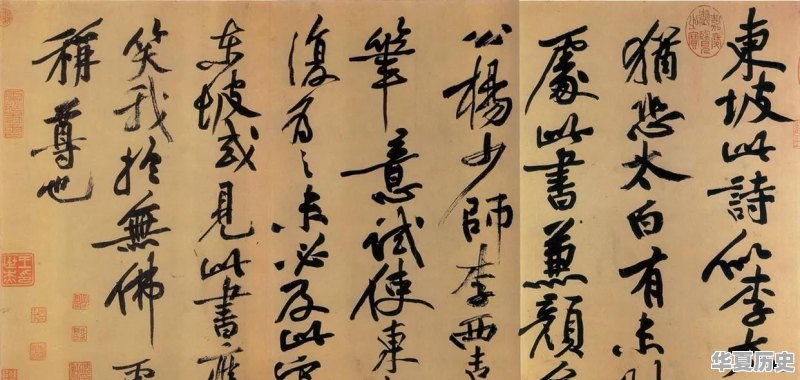 東坡此詩似李太
猶恐太白有未到
處此書兼顏
公楊少師李西臺
筆意試使東
復為之未必及此
東坡或見此書應
笑我於無佛
稱尊也
嘉慶御覽之寶
华夏历史